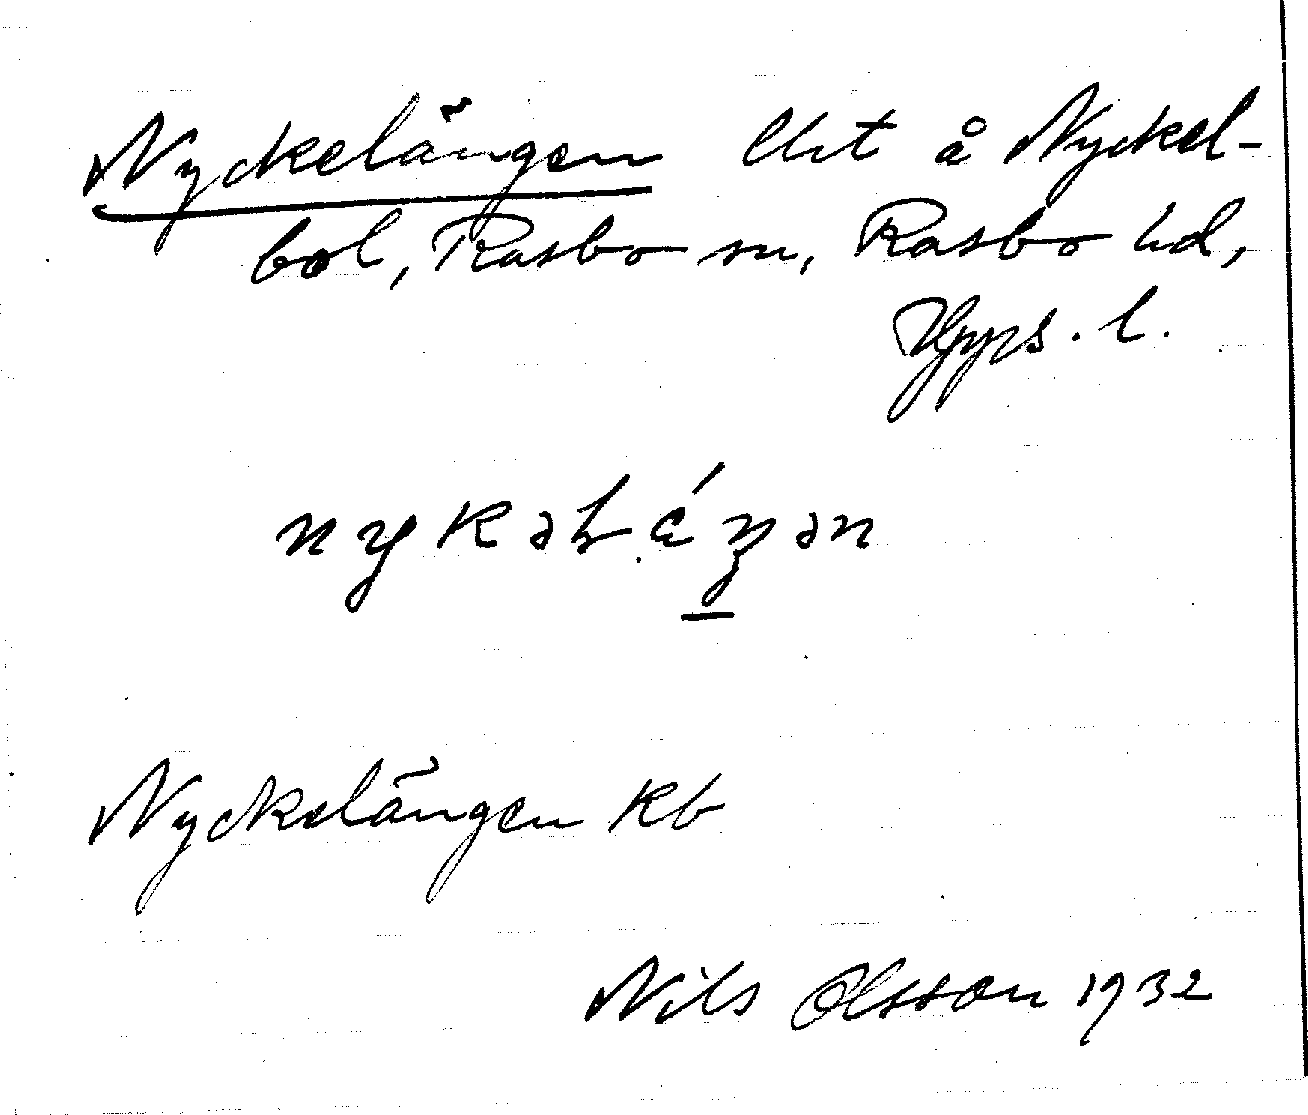 Nyckelängen Utst å Nyckel-
bol, Rasbo sn, Rasbo hd,
Upps. l.
Nyckelängen kb
Nils Olsson 1932